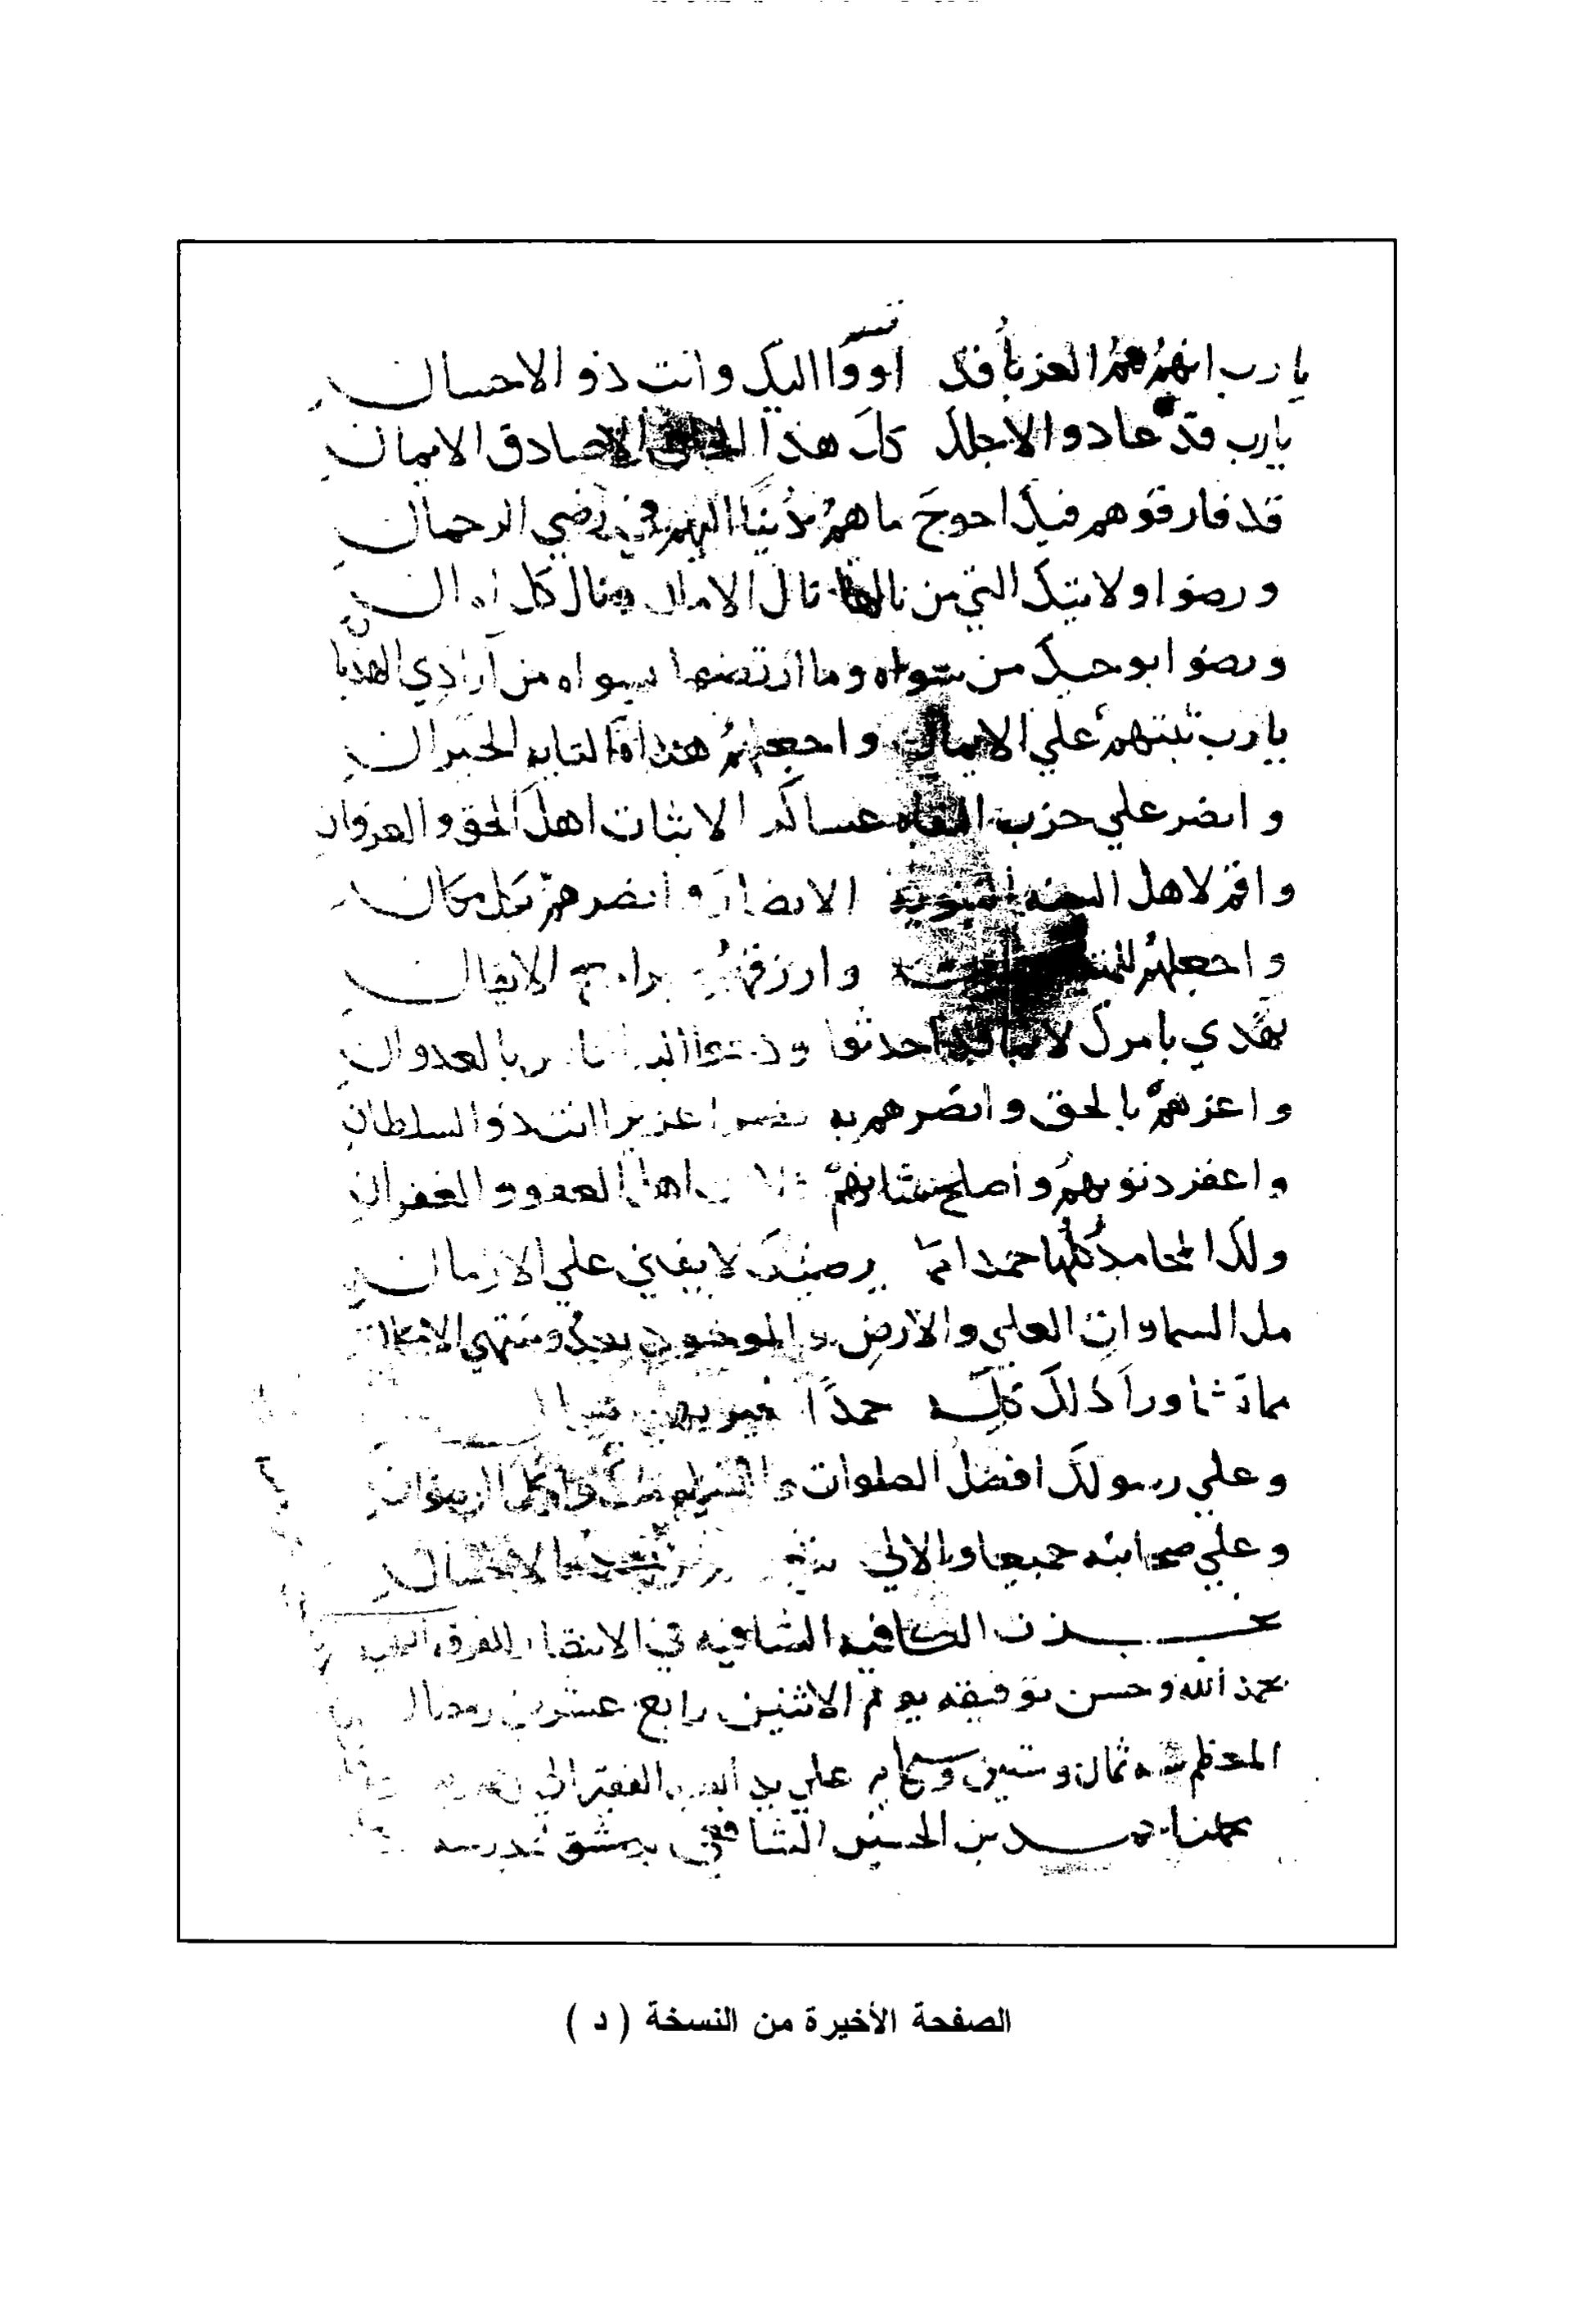 يا رب انهم هم الغربا قد اووا اليك وانت ذو الاحسان
يا رب قد عادوا الاجلك كل هذا الخلق الا صادق الايمان
قد فارقوهم فيك احوج ما هم دنيا اليهم في رضي الرحمان
ورضوا ولايتك التي من نالها نال الامان ونال كل امان
ورضوا بوحيك من سواه وما ارتضوا بسواه من آرا ذي الهذيان
يا رب ثبتهم علي الايمان واجعلهم هداة التايه الحيران
وانصر علي حزب النفاة عساكر الاثبات اهل الحق والعرفان
واقم لاهل السنة النبوية الانصار وانصرهم بكل مكان
واجعلهم وارزقهم الايقان
تهدي بامرك لا بما قد احدثوا ودعوا اليه بالعدوان
واعزهم بالحق وانصرهم به نصرا عزيزا انت ذو السلطان
واغفر ذنوبهم واصلح شانهم اهل العفو والغفران
ولك المحامد كلها حمدا كما يرضيك لا يفني علي الازمان
مل السماوات العلي والارض والموجود بعد ومنتهي الامكان
مما تشا ورا ذلك كله حمدا بغير
وعلي رسولك افضل الصلوات والتسليم منك واكمل الرضوان
وعلي صحابته جميعا والالي من بعد بالاحسان
نجزت الكافية الشافية في الانتصار للفرقة
بحمد الله وحسن توفيقه يوم الاثنين رابع عشرين رمضان
المعظم سنة ثمان وستين وسبعمايه علي يد الفقير الي
مهنا بن الحسين الشافعي بدمشق بمدرسة
الصفحة الأخيرة من النسخة ( د )